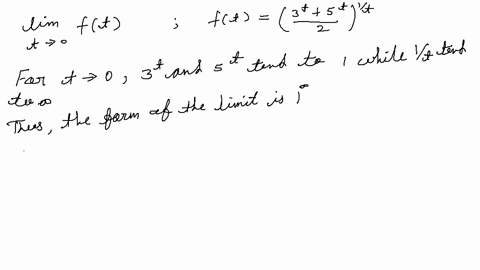 lim t→0 f(t) ; f(t) = ((3^t + 5^t)/2)^(1/t)
For t → 0 , 3^t and 5^t tend to 1 while 1/t tend
to ∞
Thus, the form of the limit is 1^∞